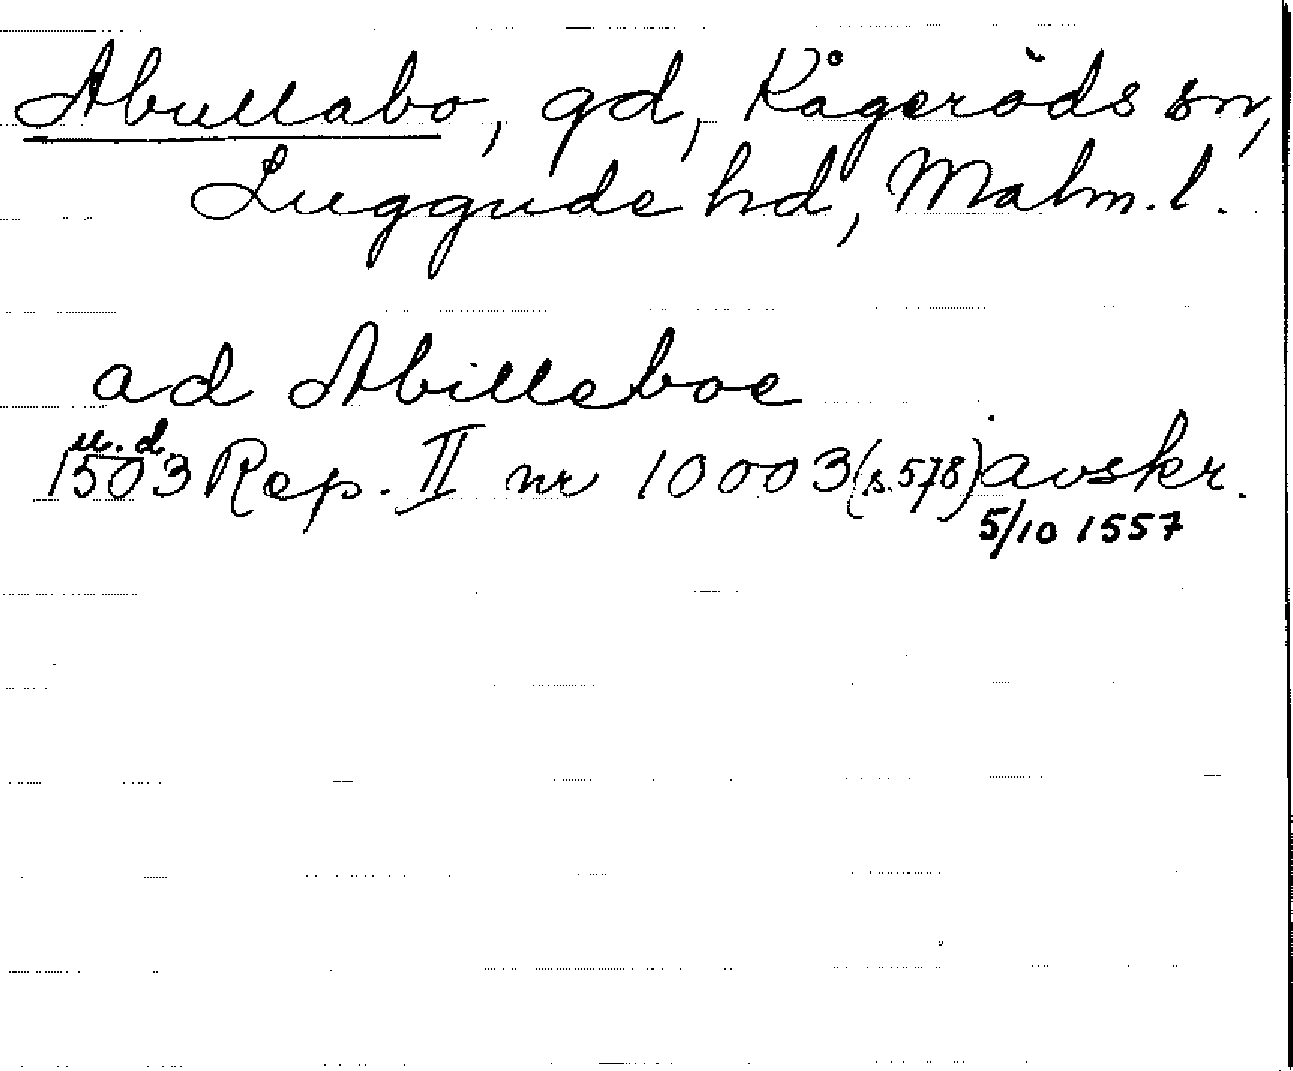 Abullabo, gd, Kågeröds sn,
Luggude hd, Malm. l.
ad Abilleboe
u. d.
1503 Rep. II nr 10003 (s. 578) avskr.
5/10 1557